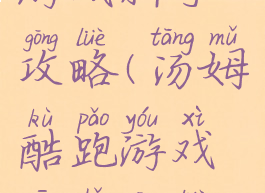 gōng lüè tāng mǔ
攻略(汤姆
kù pǎo yóu xì
酷跑游戏